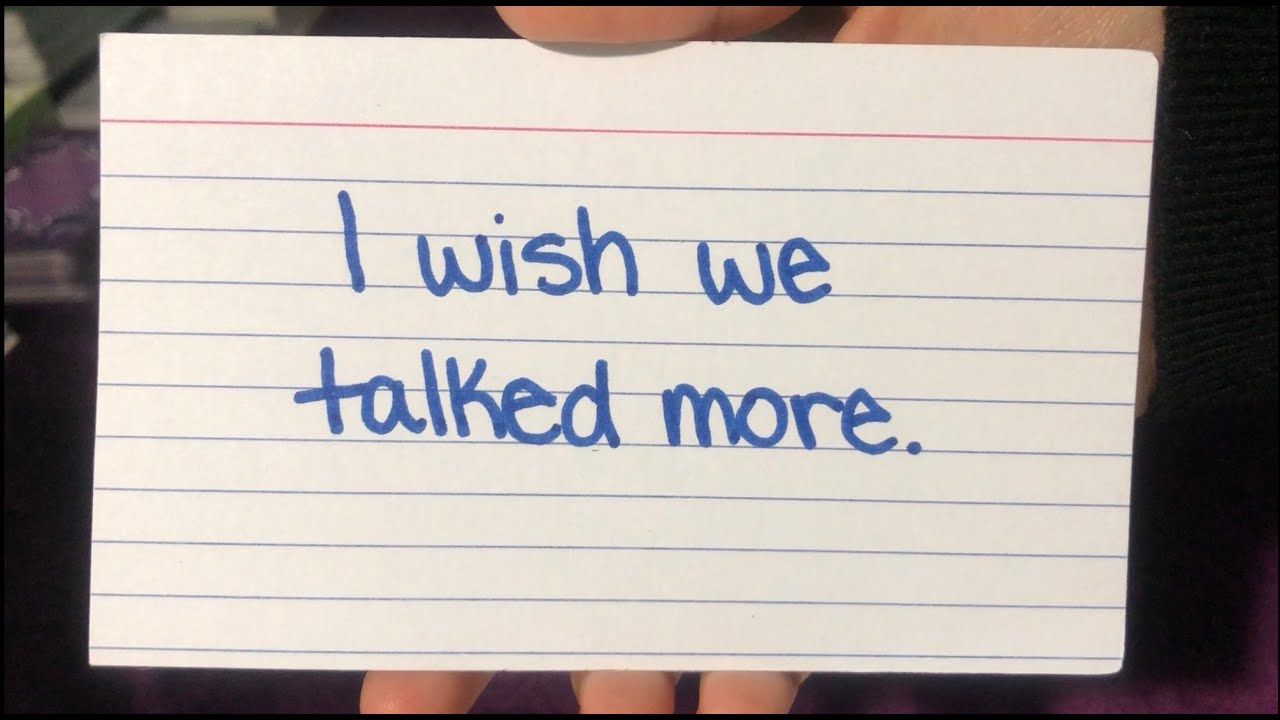 I wish we
talked more.